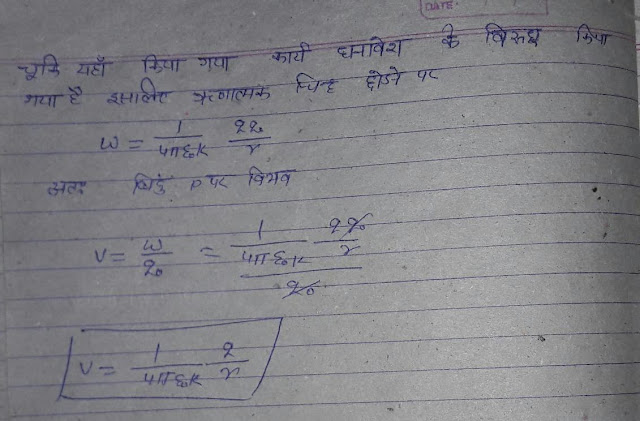 DATE:
चूंकि यहाँ किया गया कार्य धनावेश के विरुद्ध किया
गया है इसलिए ऋणात्मक चिन्ह छोडने पर
W = 1/4πε₀K qq₀/r
अतः बिंदु P पर विभव
V = W/q₀ = (1/4πε₀K qq₀/r)/q₀
V = 1/4πε₀K q/r